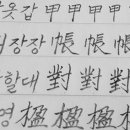 옷갑 甲 甲 甲 甲
장장 帳 帳 帳
할대 對 對 對
영 楹 楹 楹 楹